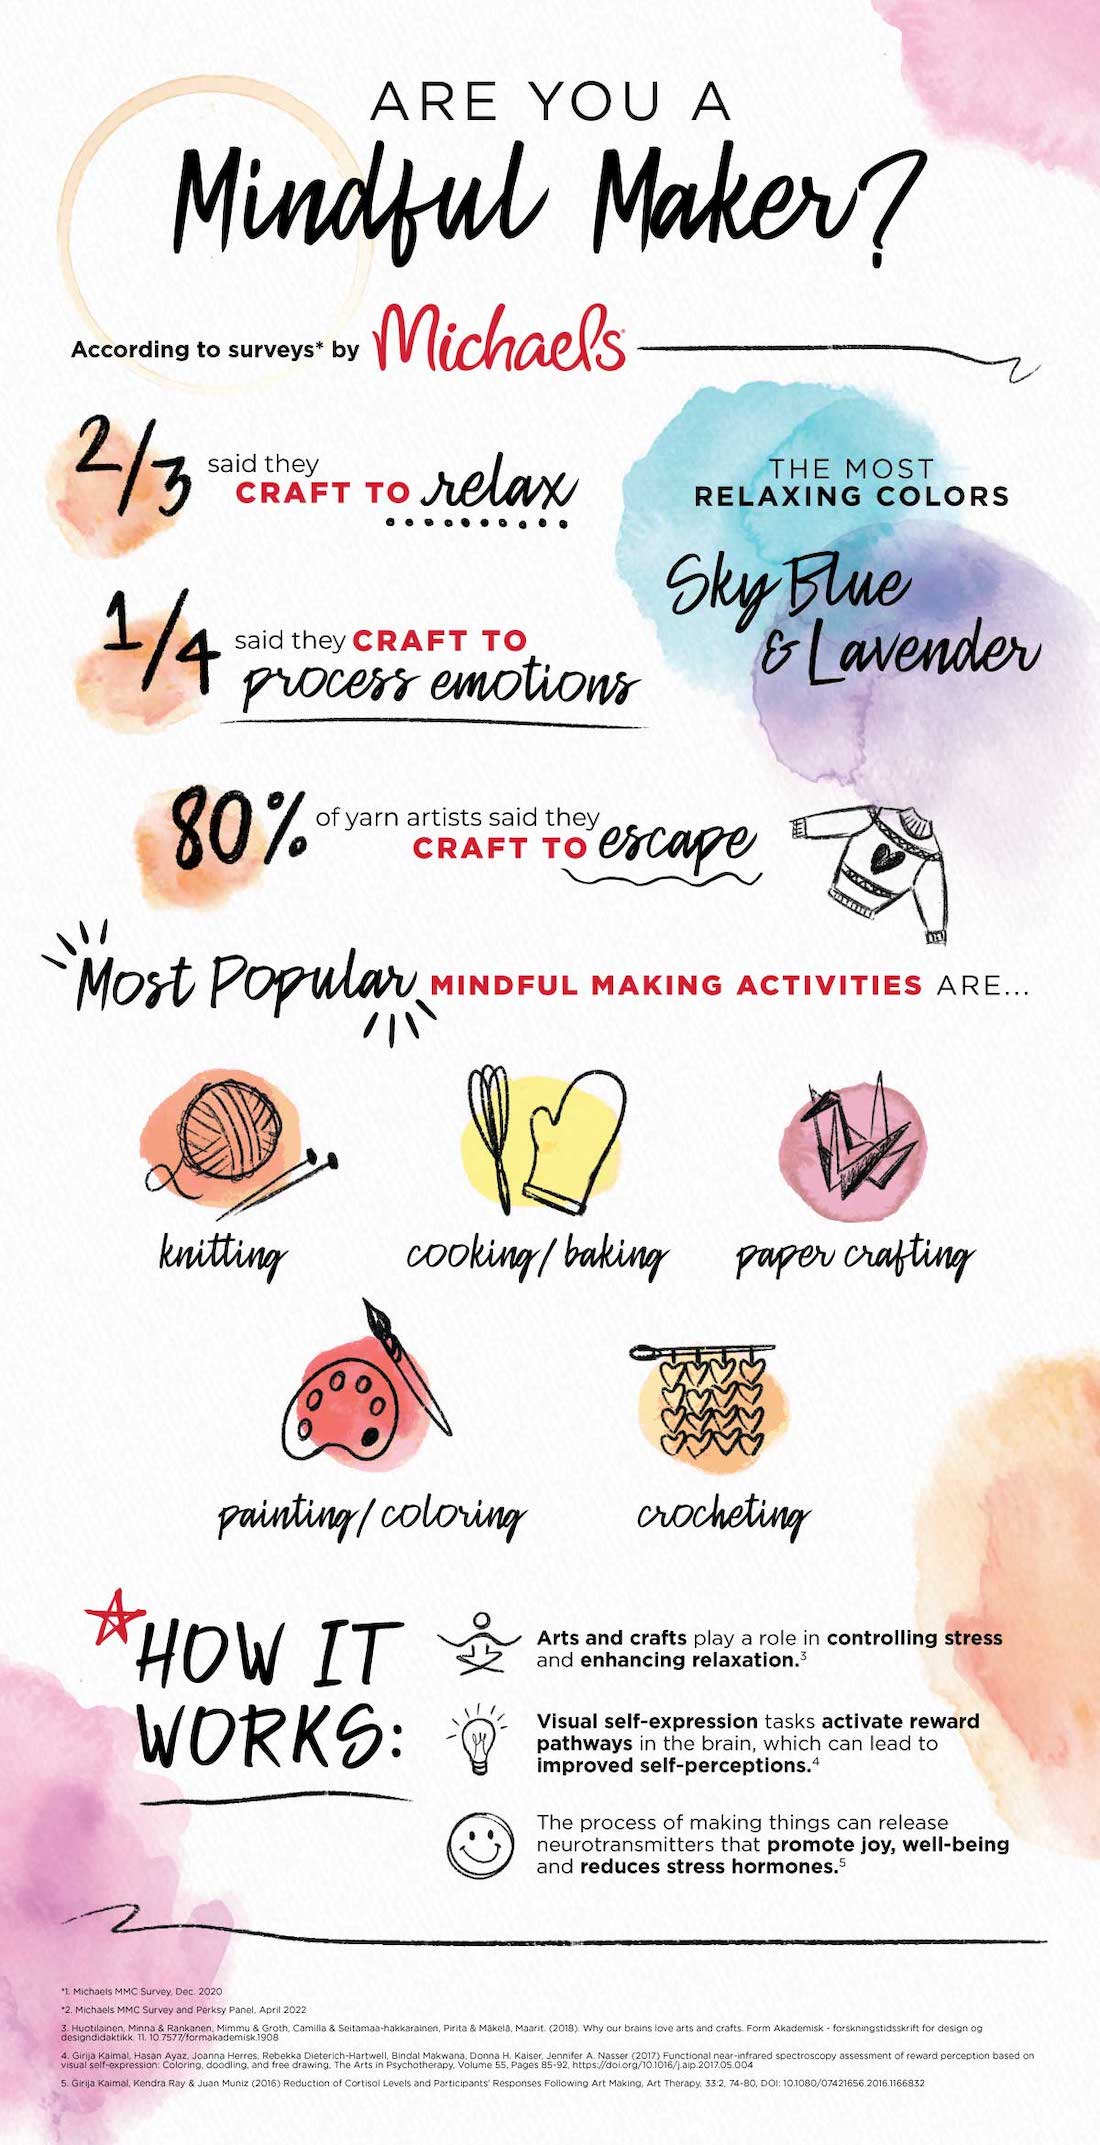 ARE YOU A
Mindful Maker?
According to surveys* by Michaels
2/3 said they
CRAFT TO relax
THE MOST
RELAXING COLORS
Sky Blue
& Lavender
1/4 said they CRAFT TO
process emotions
80% of yarn artists said they
CRAFT TO escape
Most Popular MINDFUL MAKING ACTIVITIES ARE...
knitting
cooking/baking
paper crafting
painting/coloring
crocheting
HOW IT
WORKS:
Arts and crafts play a role in controlling stress
and enhancing relaxation.3
Visual self-expression tasks activate reward
pathways in the brain, which can lead to
improved self-perceptions.4
The process of making things can release
neurotransmitters that promote joy, well-being
and reduces stress hormones.5
*1. Michaels MMC Survey, Dec. 2020
*2. Michaels MMC Survey and Perksy Panel, April 2022
3. Huotilainen, Minna & Rankanen, Mimmu & Groth, Camilla & Seitamaa-hakkarainen, Pirita & Mäkelä, Maarit. (2018). Why our brains love arts and crafts. Form Akademisk - forskningstidsskrift for design og
designdidaktikk. 11. 10.7577/formakademisk.1908
4. Girija Kaimal, Hasan Ayaz, Joanna Herres, Rebekka Dieterich-Hartwell, Bindal Makwana, Donna H. Kaiser, Jennifer A. Nasser (2017) Functional near-infrared spectroscopy assessment of reward perception based on
visual self-expression: Coloring, doodling, and free drawing, The Arts in Psychotherapy, Volume 55, Pages 85-92, https://doi.org/10.1016/j.aip.2017.05.004
5. Girija Kaimal, Kendra Ray & Juan Muniz (2016) Reduction of Cortisol Levels and Participants' Responses Following Art Making, Art Therapy, 33:2, 74-80, DOI: 10.1080/07421656.2016.1166832